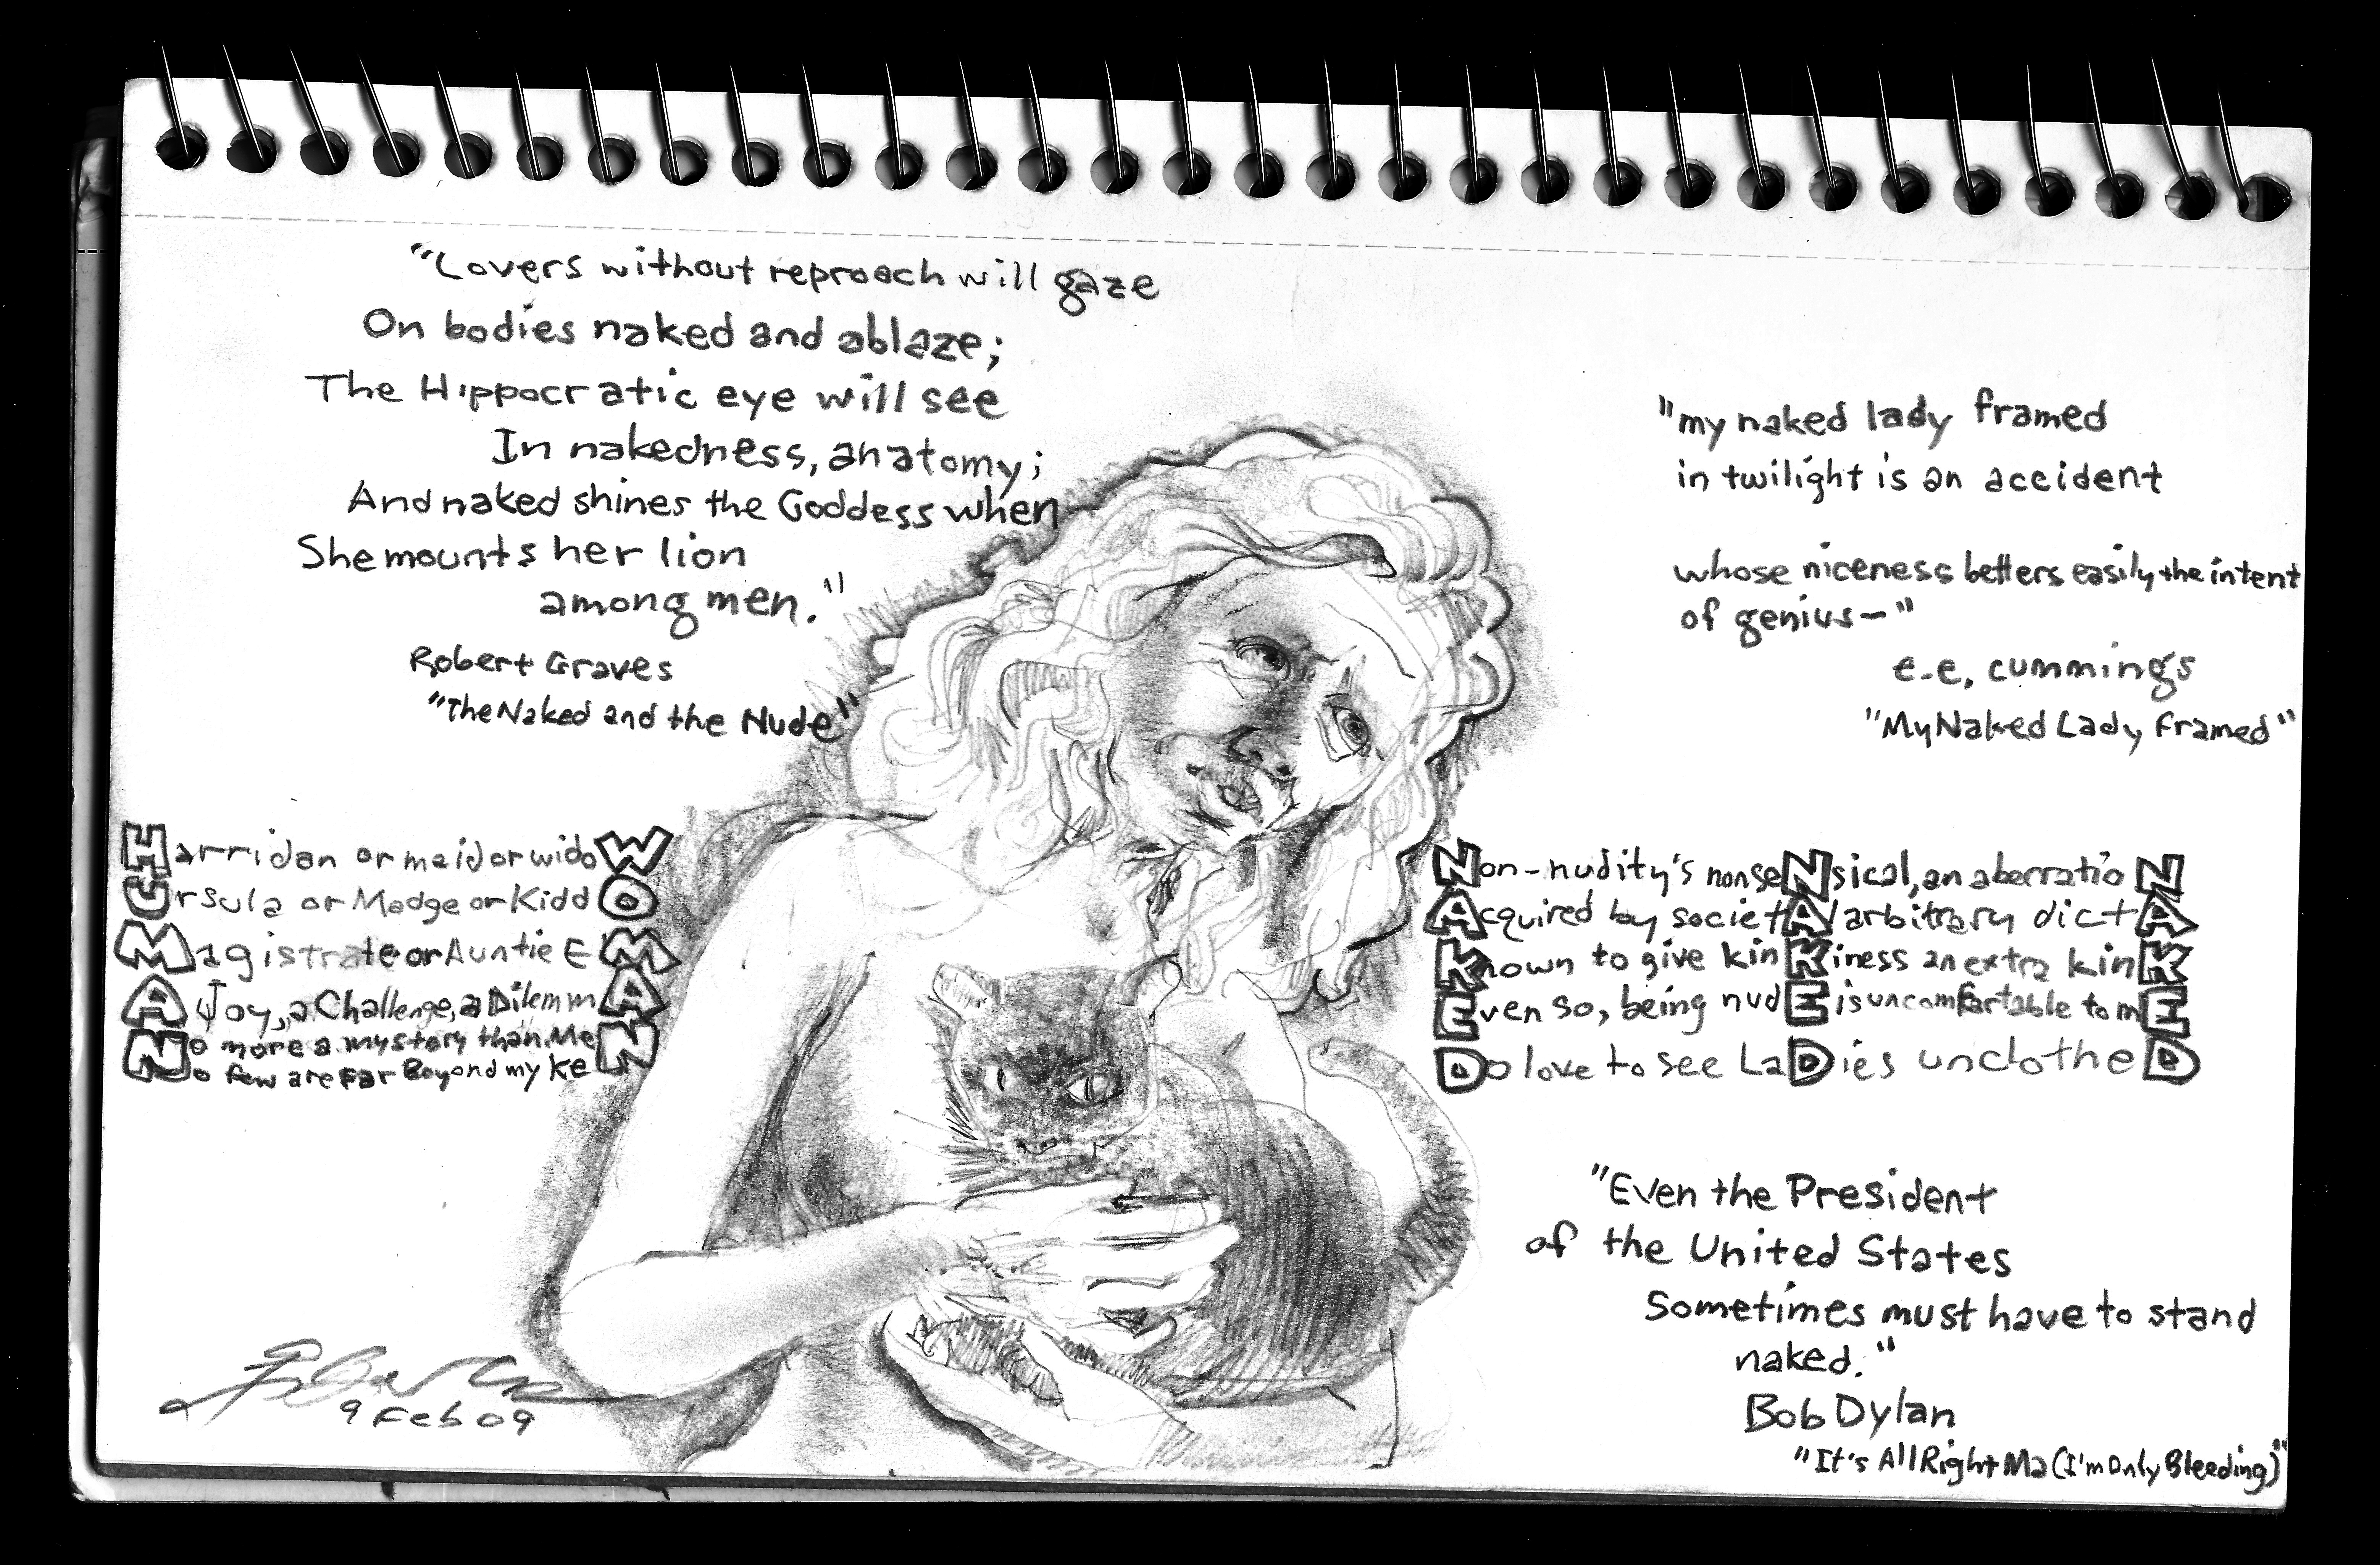 "Lovers without reproach will gaze
On bodies naked and ablaze;
The Hippocratic eye will see
In nakedness, anatomy;
And naked shines the Goddess when
She mounts her lion
among men."
Robert Graves
"The Naked and the Nude"
"my naked lady framed
in twilight is an accident
whose niceness betters easily the intent
of genius—"
e.e. cummings
"My Naked Lady Framed"
Harridan or maid or widoW
Ursula or Madge or KiddO
Magistrate or Auntie EM
A Joy, a Challenge, a DilemmA
No more a mystery than MeN
No few are Far Beyond my KeN
Non-nudity's nonseNsical, an aberratioN
Acquired by societAl arbitrary dictA
Known to give kinKiness an extra kinK
Even so, being nudE is uncomfortable to mE
Do love to see LaDies unclotheD
"Even the President
of the United States
Sometimes must have to stand
naked."
Bob Dylan
"It's All Right Ma (I'm Only Bleeding)"
9 Feb 09